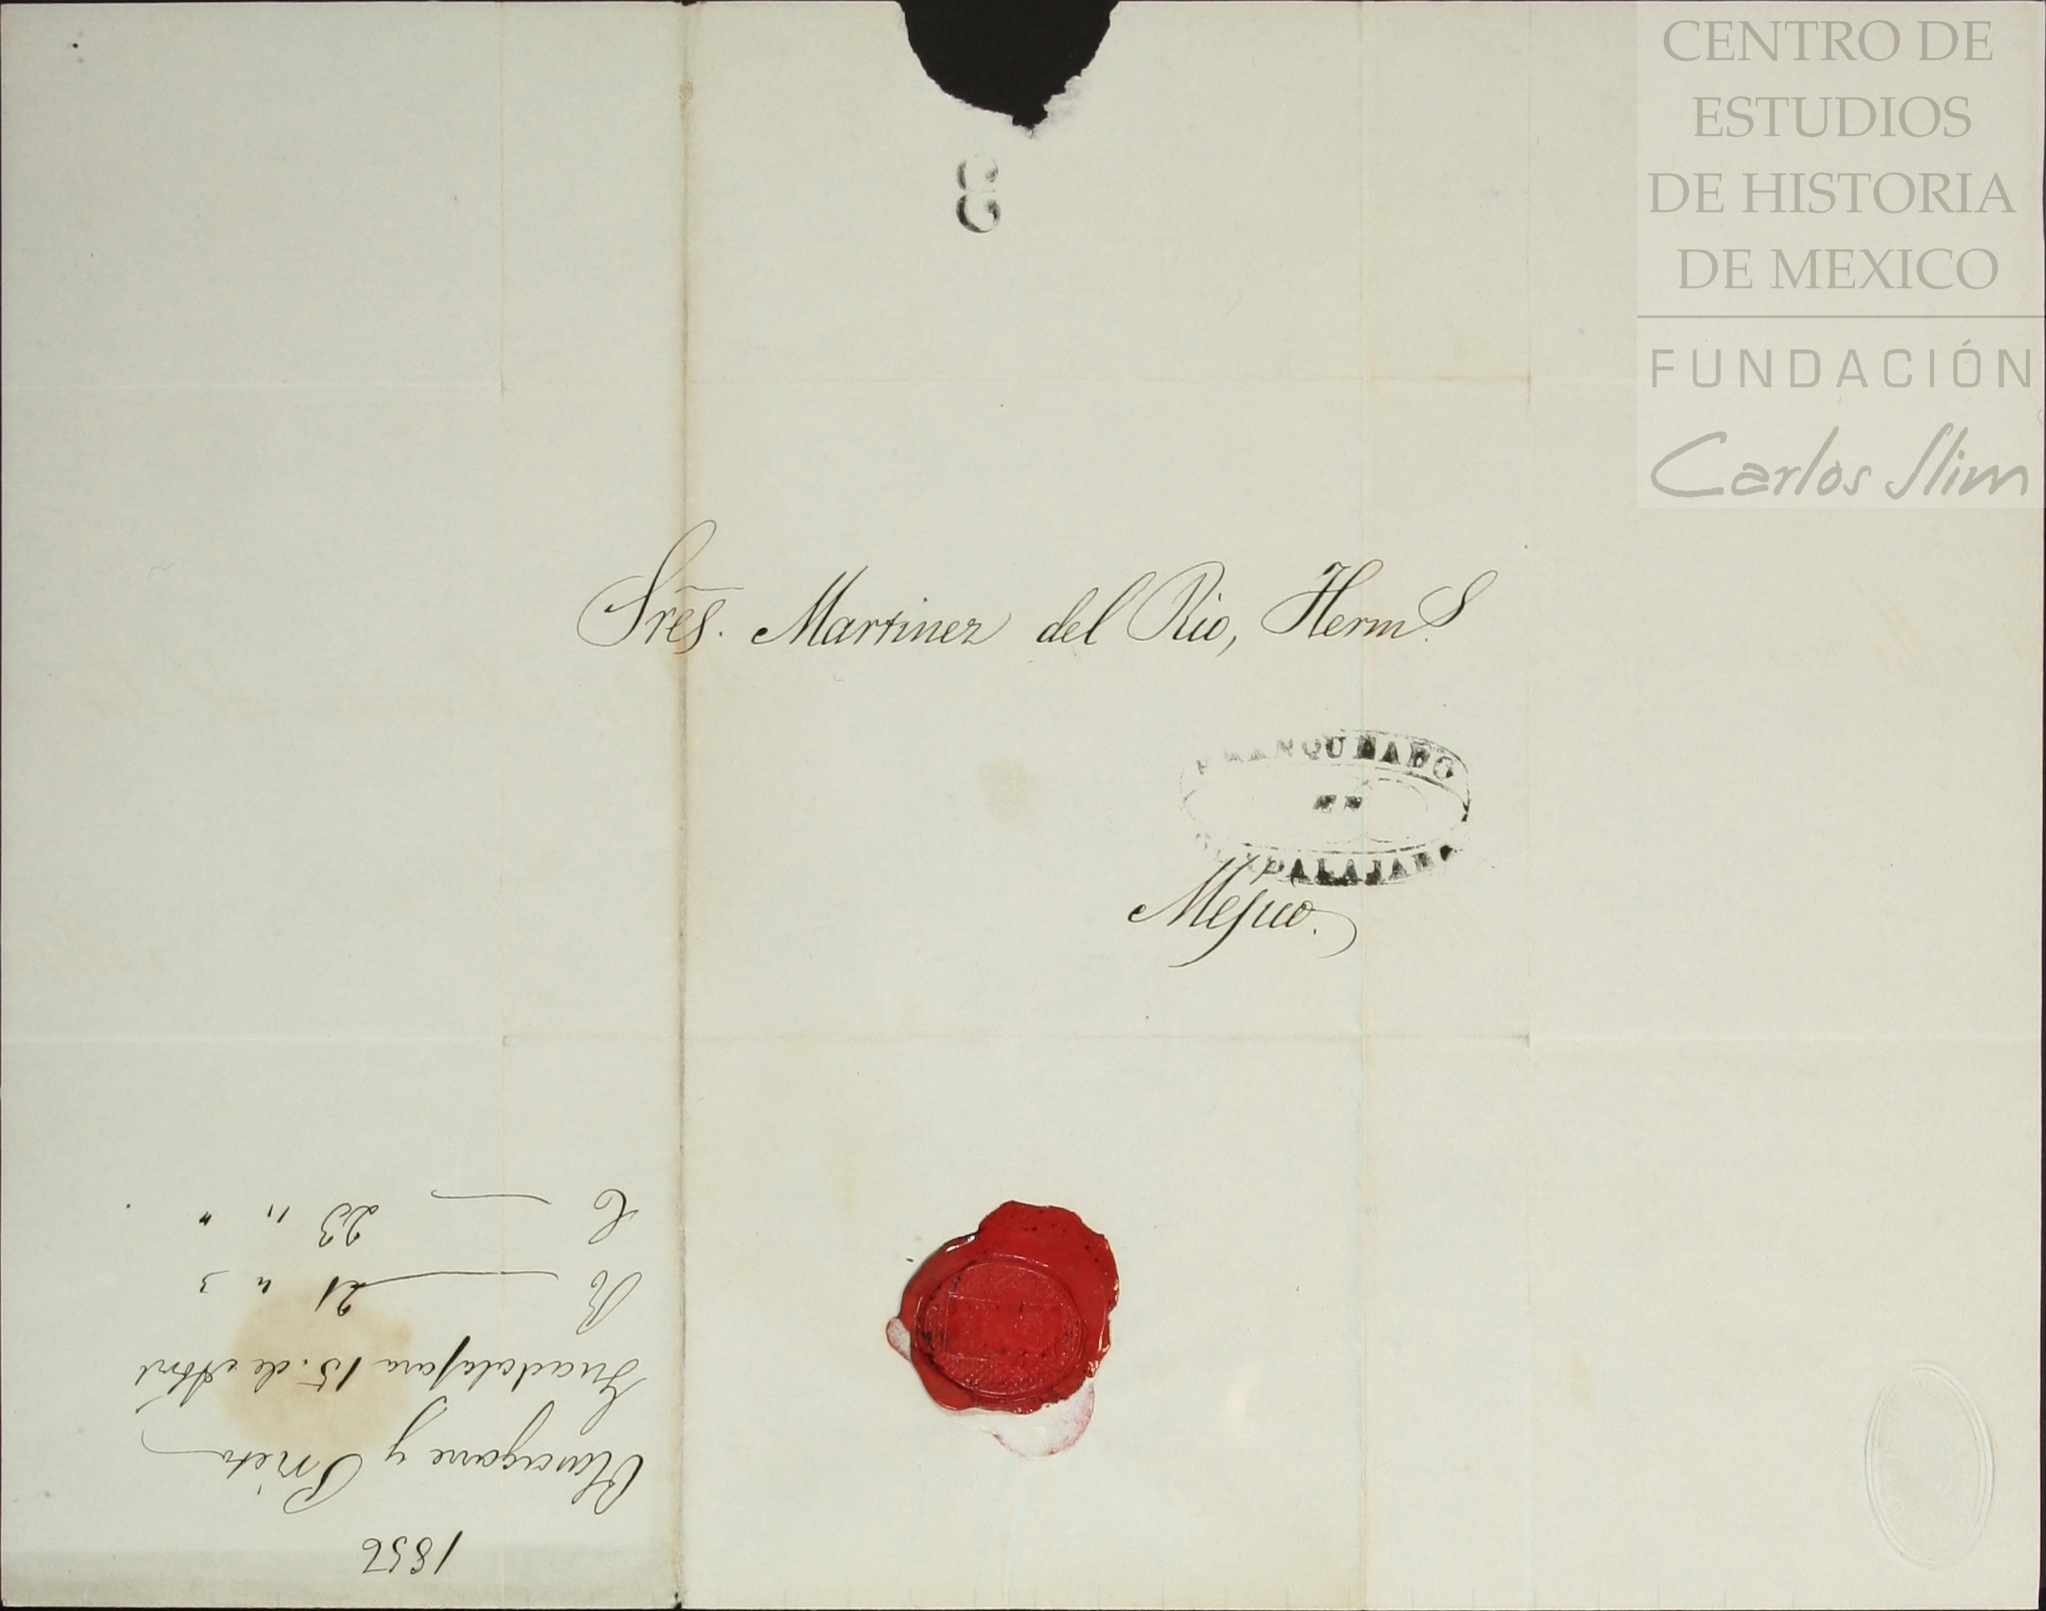 CENTRO DE
ESTUDIOS
DE HISTORIA
DE MEXICO
FUNDACIÓN
Carlos Slim
Sres. Martinez del Rio, Herm.s
FRANQUEADO
EN
GUADALAJARA
Mejico.
1856
Olasagarre y Prieto
Guadalajara 15. de Abril
R 21 " "
C 23 " "